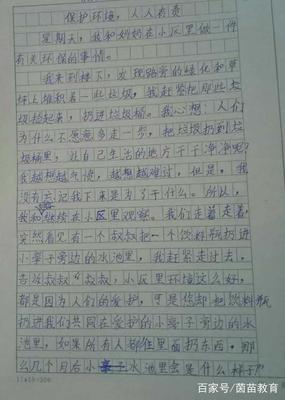 保护环境，人人有责
星期天，我和妈妈在小区里做一件
有关环保的事情。
我来到楼下，发现路旁的绿化和草
坪上堆积着一些垃圾，我赶紧把那些垃
圾捡起来，扔进垃圾桶。我心想：人们
为什么不愿意多走一步，把垃圾扔到垃
圾桶里，让自己生活的地方干干净净呢？
我越想越气愤，越想越难过，但是，我
没有忘记我下来是为了干什么。所以，
我和继续在小区里观察。我们走着走着，
突然看见有一个叔叔把一个饮料瓶扔进
小亭子旁边的水池里，我赶紧走过去，
告诉叔叔“叔叔，小区里环境这么好，
都是因为人们的爱护，可是你却把饮料瓶
扔进我们共同在爱护的小亭子旁边的水
池里，如果所有人都往里面扔东西，那
么几个月后小亭子水池里会是什么样子？
百家号/茵苗教育